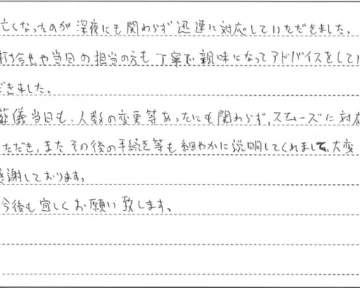 亡くなったのが深夜にも関わらず迅速に対応していただきました。
打合せや当日の担当の方も丁寧で親味になってアドバイスをしてい
だきました。
葬儀当日も、人数の変更等あったにも関わらず、スムーズに対応
ただき、またその後の手続き等も細やかに説明してくれまして、大変
感謝しております。
今後も宜しくお願い致します。